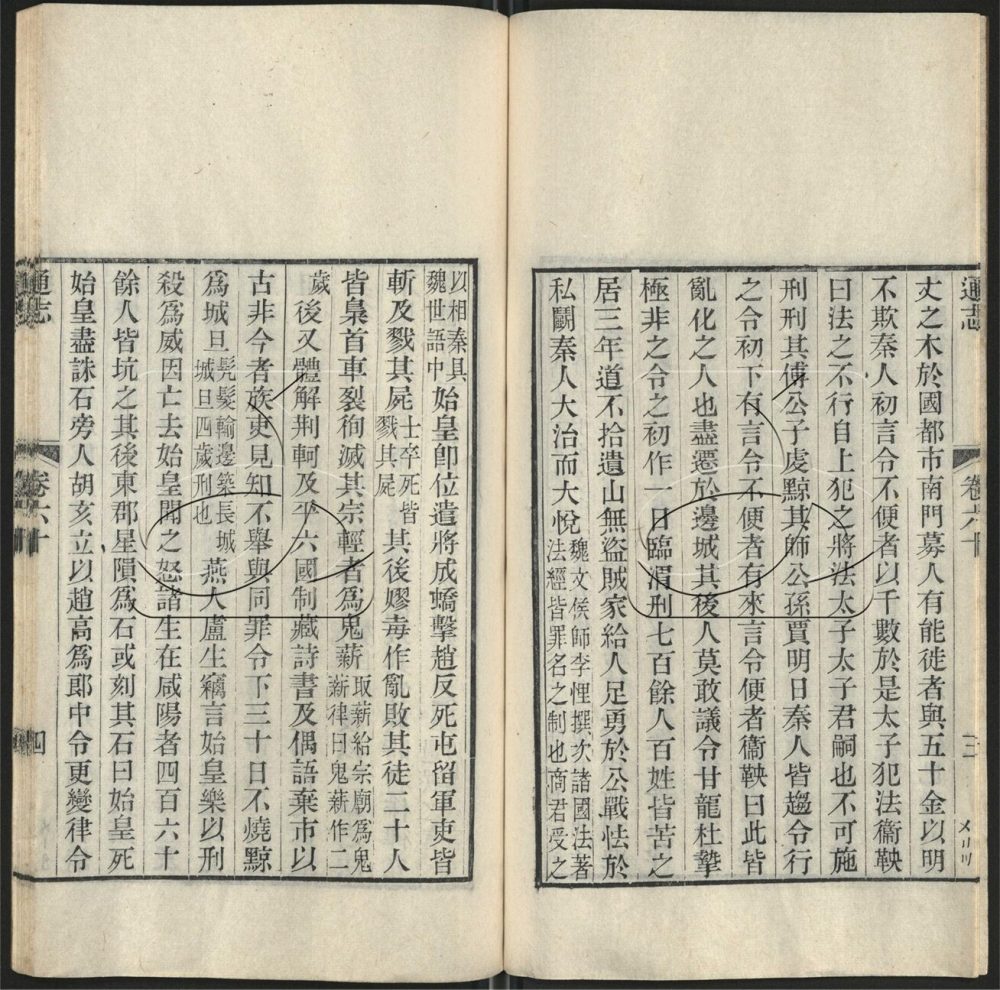 通志 卷六十
丈之木於國都市南門募人有能徙者與五十金以明
不欺秦人初言令不便者以千數於是太子犯法衞鞅
曰法之不行自上犯之將法太子太子君嗣也不可施
刑刑其傅公子虔黥其師公孫賈明日秦人皆趨令行
之令初下有言令不便者有來言令便者衞鞅曰此皆
亂化之人也盡遷於邊城其後人莫敢議令甘龍杜摯
極非之令之初作一日臨渭刑七百餘人百姓皆苦之
居三年道不拾遺山無盜賊家給人足勇於公戰怯於
私鬭秦人大治而大悅魏文侯師李悝撰次諸國法著法經皆罪名之制也商君受之
以相秦具魏世語中始皇卽位遣將成蟜擊趙反死屯留軍吏皆
斬及戮其屍士卒死皆戮其屍其後嫪毐作亂敗其徒二十人
皆梟首車裂徇滅其宗輕者爲鬼薪取薪給宗廟爲鬼薪律曰鬼薪作二
歲後又體解荆軻及平六國制藏詩書及偶語棄市以
古非今者族吏見知不舉與同罪令下三十日不燒黥
爲城旦髡髮輸邊築長城城旦四歲刑也燕人盧生竊言始皇樂以刑
殺爲威因亡去始皇聞之怒諸生在咸陽者四百六十
餘人皆坑之其後東郡星隕爲石或刻其石曰始皇死
始皇盡誅石旁人胡亥立以趙高爲郎中令更變律令
通志 卷六十 四